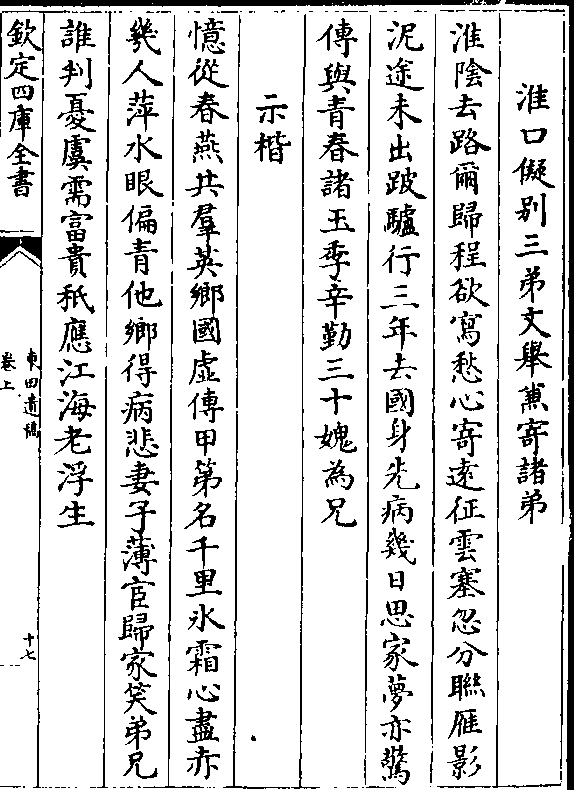 淮口儗别三弟文舉兼寄諸弟
淮陰去路爾歸程欲寫愁心寄逺征雲塞忽分聨雁影
泥途未出跛驢行三年去國身先病幾日思家夢亦驚
傳與青春諸玉季辛勤三十媿為兄
示楷
憶從春燕共羣英鄉國虚傳甲第名千里氷霜心盡赤
幾人萍水眼偏青他鄉得病悲妻子薄宦歸家笑弟兄
誰判憂虞需富貴秪應江海老浮生
欽定四庫全書
東田遺稿
卷上
十七